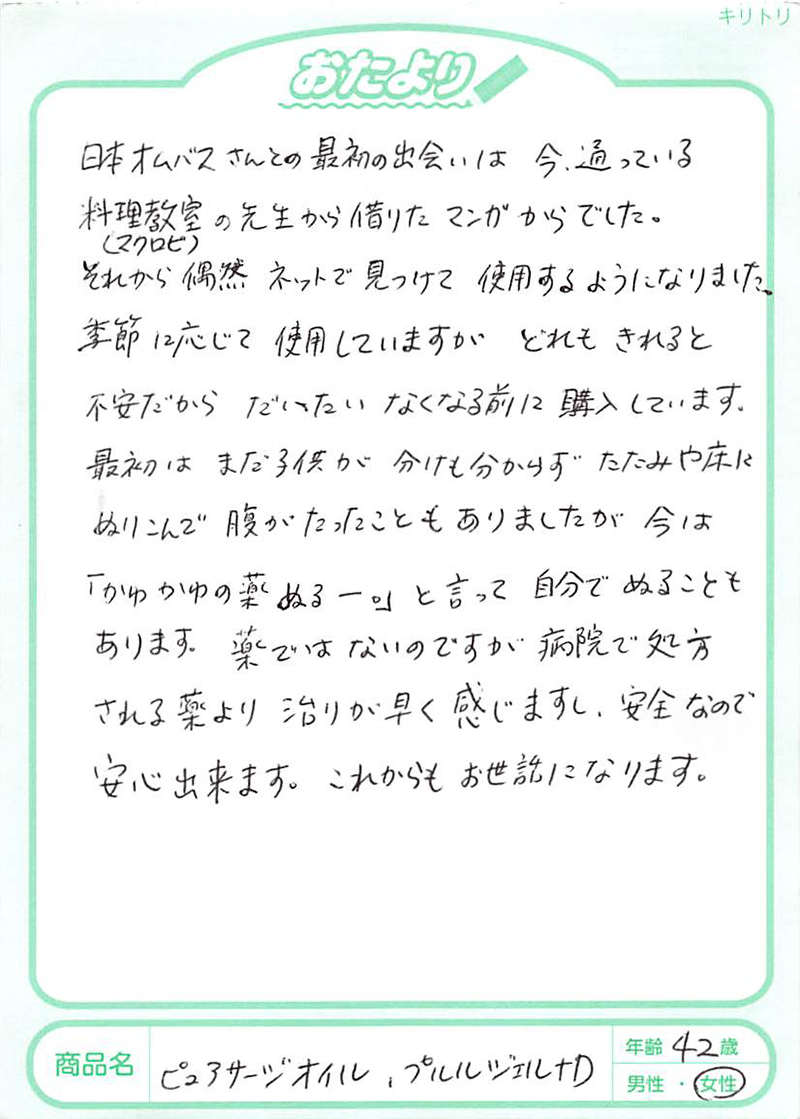 キリトリ
おたより
日本オムバスさんとの最初の出会いは 今、通っている
料理教室の先生から借りた マンガからでした。
(マクロビ)
それから偶然 ネットで見つけて 使用するようになりました。
季節に応じて 使用していますが どれも きれると
不安だから だいたい なくなる前に 購入しています。
最初は まだ子供が 分けも分からず たたみや床に
ぬりこんで 腹がたったこともありましたが 今は
「かゆかゆの薬 ぬるー。」と言って 自分で ぬることも
あります。 薬ではないのですが 病院で処方
される薬より 治りが早く感じますし、安全なので
安心出来ます。 これからも お世話になります。
商品名
ピュアサージオイル、プルルジェルナD
年齢 42 歳
男性 ・ 女性